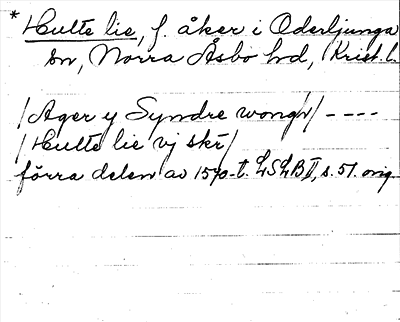 * Hulte lie, f. åker i Oderljunga
sn, Norra Åsbo hd, Krist. l.
/Ager y Syndre wongh/ ----
/Hulte lie vj skr/
förra delen av 1570-t. LSLB II, s. 51. orig.